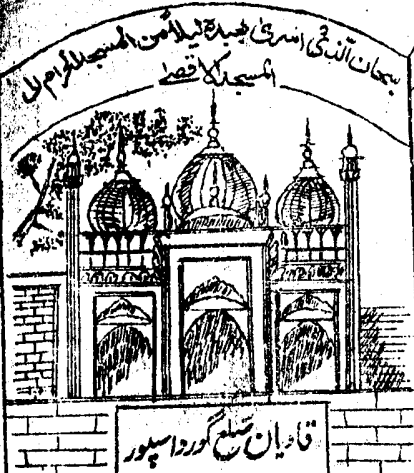 سبحان الذی اسری بعبدہ لیلا من المسجد الحرام الی
المسجد الاقصٰی
قادیان ضلع گورداسپور